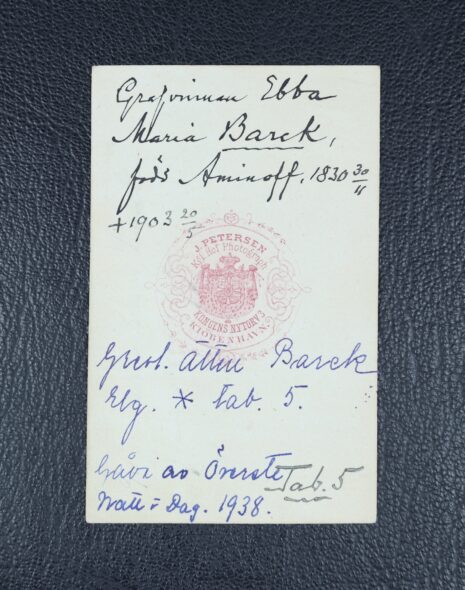 Grefvinnan Ebba
Maria Barck,
föds Aminoff. 1830 30/11
+1903 20/5
J. PETERSEN
Kgl. Hof Photograph
KONGENS NYTORV 3
KIØBENHAVN.
Grevl. ätten Barck
Elg. * Tab. 5.
Gåva av Överste
Tab. 5
Dag. 1938.